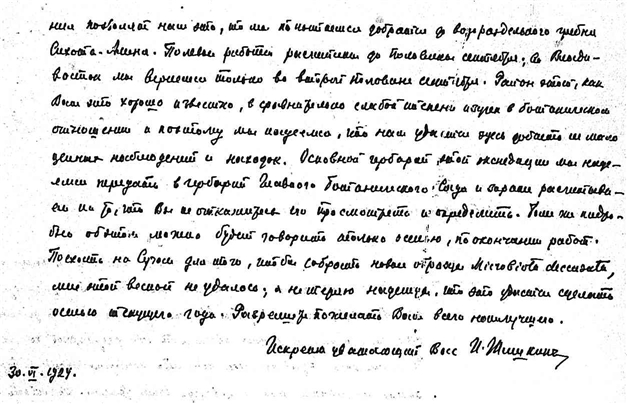 ния позволят нам это, то мы попытаемся добраться до водораздельного гребня
Сихотэ-Алиня. Полевые работы рассчитаны до половины сентября; во Влади-
восток мы вернемся только во второй половине сентября. Район этот, как
Вам это хорошо известно, в сравнительно слабой степени изучен в ботаническом
отношении и поэтому мы надеемся, что нам удастся здесь добыть не мало
ценных наблюдений и находок. Основной гербарий этой экспедиции мы наде-
емся передать в гербарий Главного Ботанического Сада и заранее рассчитыва-
ем на то, что Вы не откажитесь его просмотреть и определить. Более же подро-
бно об этом можно будет говорить только осенью, по окончании работ.
Поехать на Сучан для того, чтобы собрать новые образцы Microbiota decussata,
мне этой весной не удалось; я не теряю надежды, что это удастся сделать
осенью текущего года. Разрешите пожелать Вам всего наилучшего.
Искренно уважающий Вас И. Шишкин
30. VI. 1927.